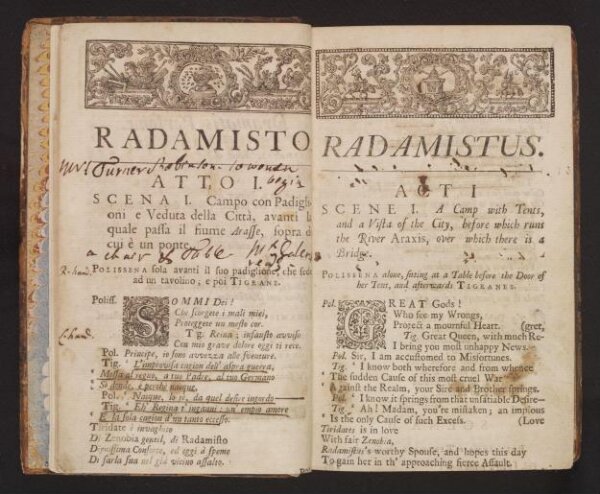 RADAMISTO
Mrs Turner Robinson to
ATTO I.
SCENA I. Campo con Padigli-
oni e Veduta della Città, avanti l
quale passa il fiume Arasse, sopra d
cui è un ponte.
a chair & Table
R-hand
POLISSENA sola avanti il suo padiglione, che sede
ad un tavolino; e poi TIGRANE.
Poliss. SOMMI Dei!
Che scorgete i mali miei,
Proteggete un mesto cor.
Tig. Reina; infausto avviso
Con mio grave dolore oggi ti reco.
Pol. Principe, io sono avvezza alle sventure.
Tig. ' L'improvisa cagion dell' aspra guerra,
' Mossa al regno, a tuo Padre, al tuo Germano
' Sì donde, e perchè nacque.
Pol. ' Nacque, lo sò, da quel desire ingordo
Tig. ' Eh! Regina t' inganni: un' empio amore
' E la sola cagion d'un tanto eccesso.
Tiridate è invaghito
Di Zenobia gentil, di Radamisto
Dignissima Consorte, ed oggi à speme
Di farla sua nel già vicino assalto.
RADAMISTUS.
ACT I
SCENE I. A Camp with Tents,
and a Vista of the City, before which runs
the River Araxis, over which there is a
Bridge.
POLISSENA alone, sitting at a Table before the Door of
her Tent, and afterwards TIGRANES.
Pol. GREAT Gods!
Who see my Wrongs,
Protect a mournful Heart. (gret,
Tig. Great Queen, with much Re-
I bring you most unhappy News.
Pol. Sir, I am accustomed to Misfortunes.
Tig. ' I know both wherefore and from whence
' The sudden Cause of this most cruel War
' Against the Realm, your Sire and Brother springs.
Pol. ' I know it springs from that unsatiable Desire—
Tig. ' Ah! Madam, you're mistaken; an impious
Is the only Cause of such Excess. (Love
Tiridates is in love
With fair Zenobia,
Radamistus's worthy Spouse, and hopes this day
To gain her in th' approaching fierce Assault.